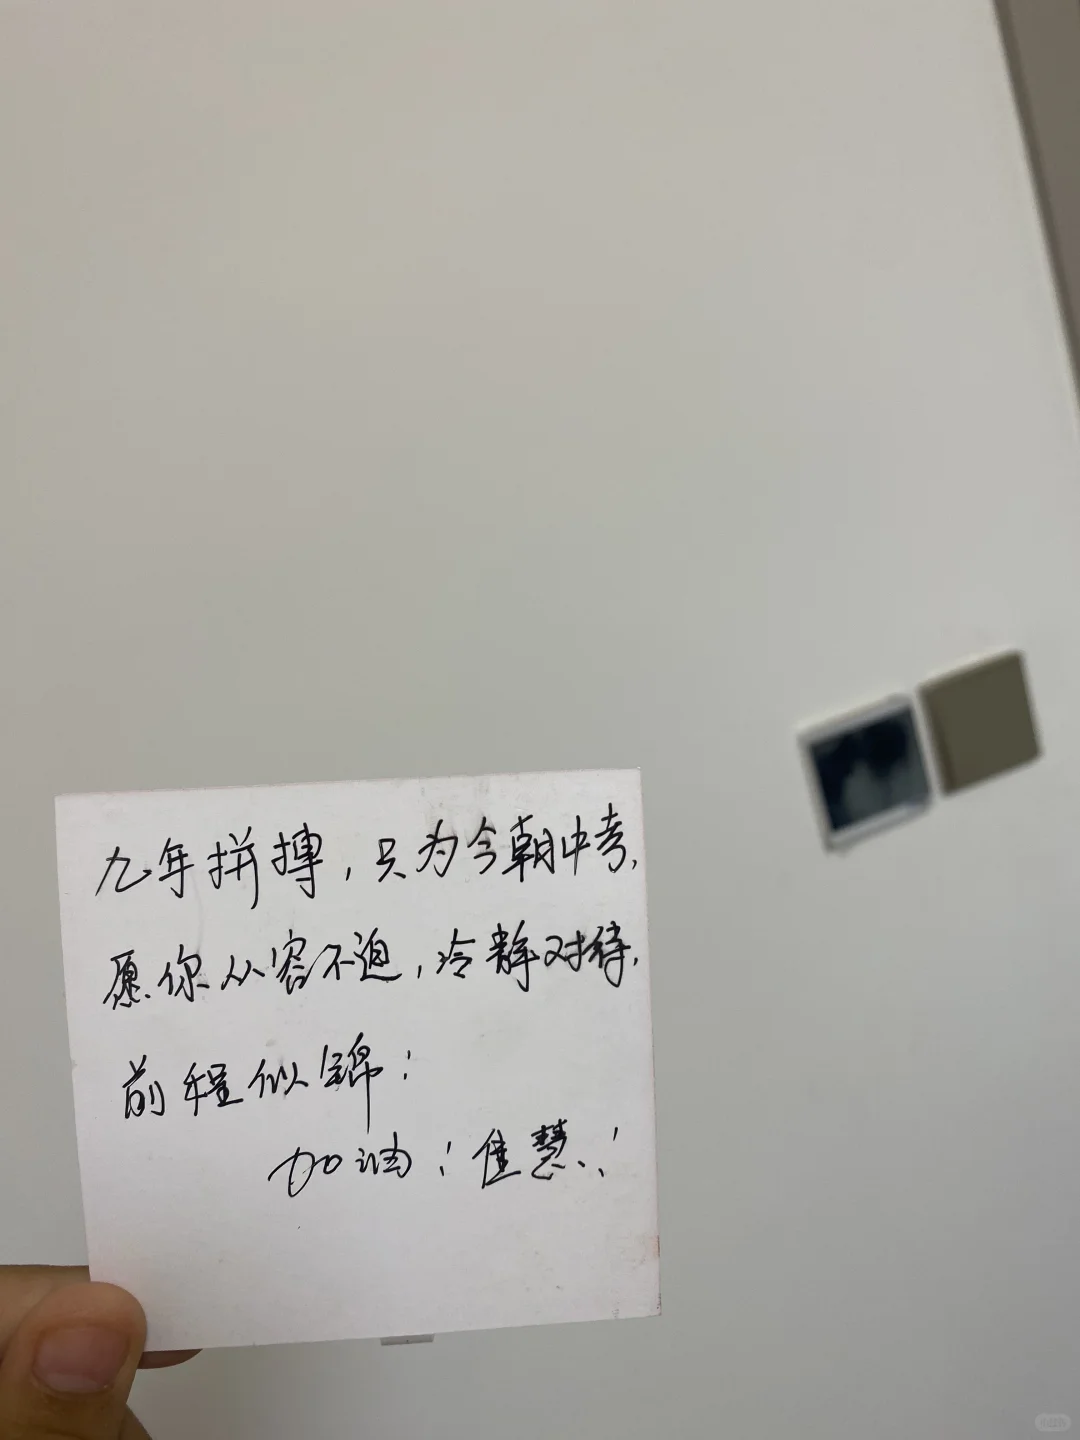 九年拼搏，只为今朝中考，
愿你从容不迫，冷静对待，
前程似锦！
加油！佳慧！
小红书